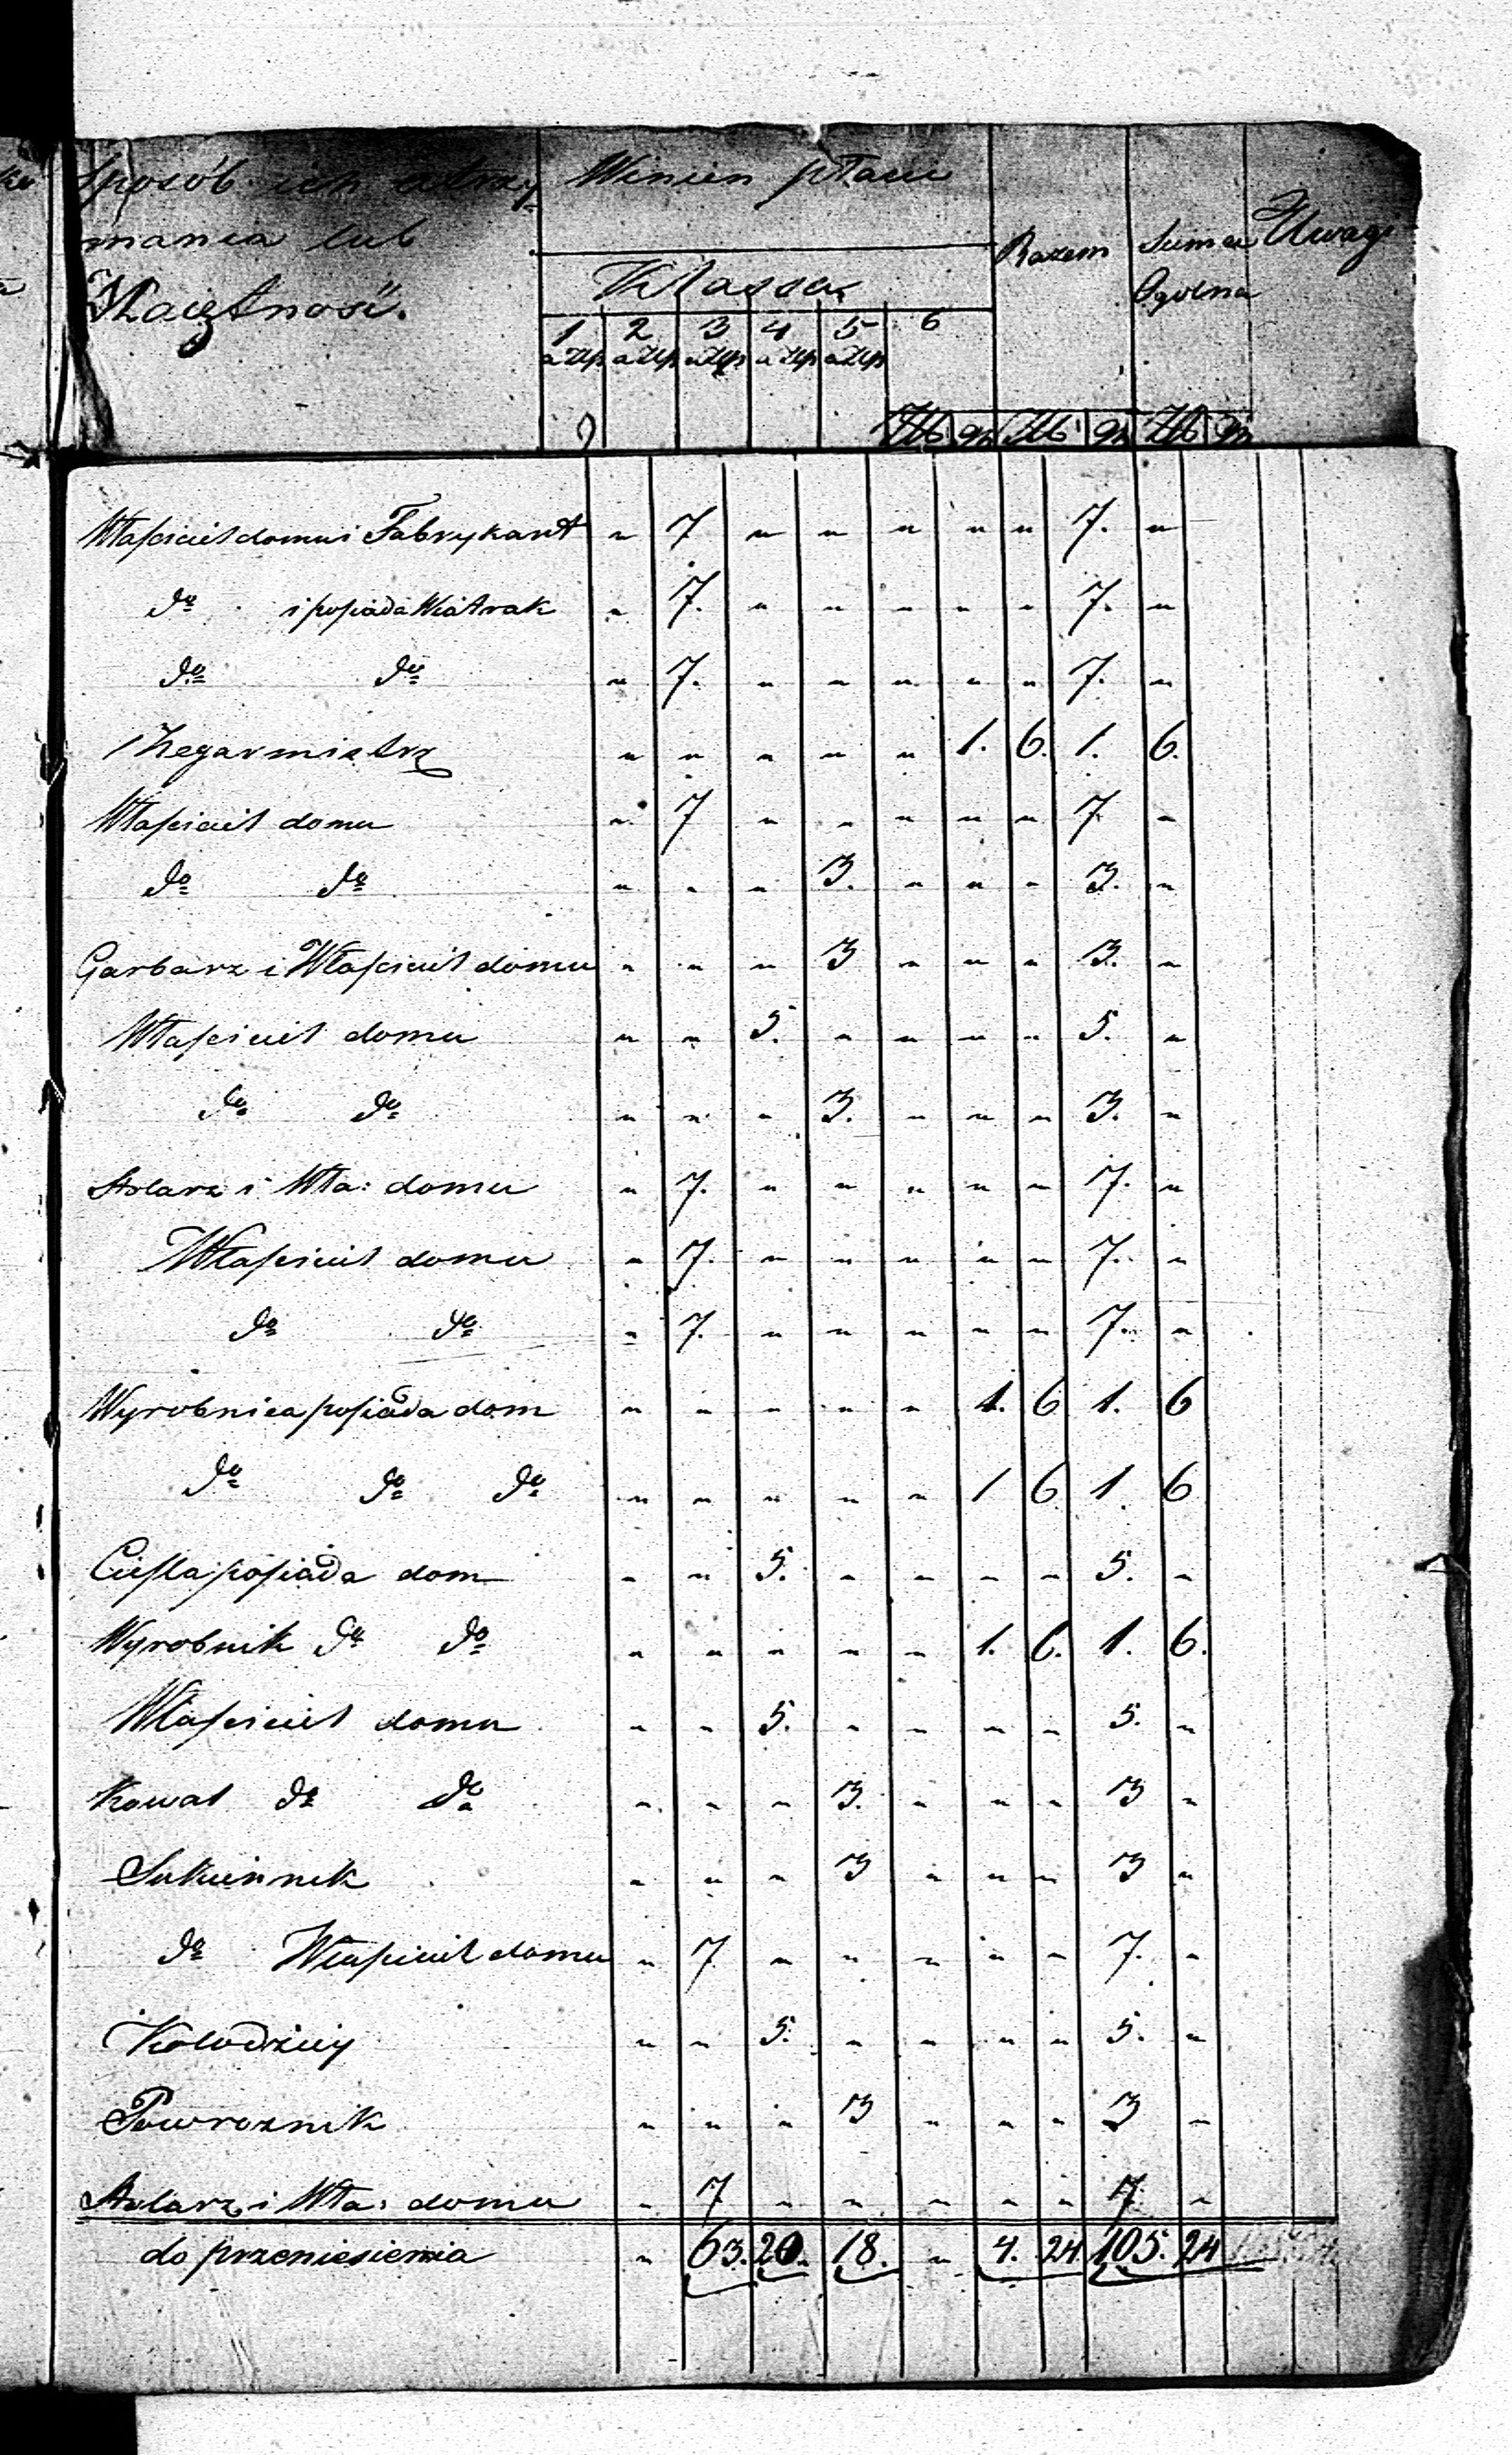 Sposób ich utrzy-
mania lub
Majętność.
Winien płacić
Klassa
1 2 3 4 5 6
a Złp a Złp a Złp a Złp a Złp
Razem
Suma
Ogólna
Uwagi
Złt gr Złt gr Złt gr
Właściciel domu i Fabrykant " 7 " " " " " 7. "
do i posiada Wiatrak " 7. " " " " " 7. "
do do " 7. " " " " " 7. "
Zegarmistrz " " " " " 1. 6. 1. 6.
Właściciel domu " 7 " " " " " 7 "
do do " " " 3. " " " 3. "
Garbarz i Właściciel domu " " " 3 " " " 3. "
Właściciel domu " " 5. " " " " 5. "
do do " " " 3. " " " 3. "
Stolarz i Wła: domu " 7. " " " " " 7. "
Właściciel domu " 7. " " " " " 7. "
do do " 7. " " " " " 7. "
Wyrobnica posiada dom " " " " " 1. 6 1. 6
do do do " " " " " 1 6 1. 6
Cieśla posiada dom " " 5. " " " " 5. "
Wyrobnik do do " " " " " 1. 6. 1. 6.
Właściciel domu " " 5. " " " " 5. "
Kowal do do " " " 3. " " " 3 "
Sukiennik " " " 3 " " " 3 "
do Właściciel domu " 7 " " " " " 7. "
Kołodziey " " 5. " " " " 5. "
Powroznik " " " 3 " " " 3 "
Stolarz i Wła: domu " 7 " " " " " 7 "
do przeniesienia " 63. 20. 18. " 4. 24 105. 24